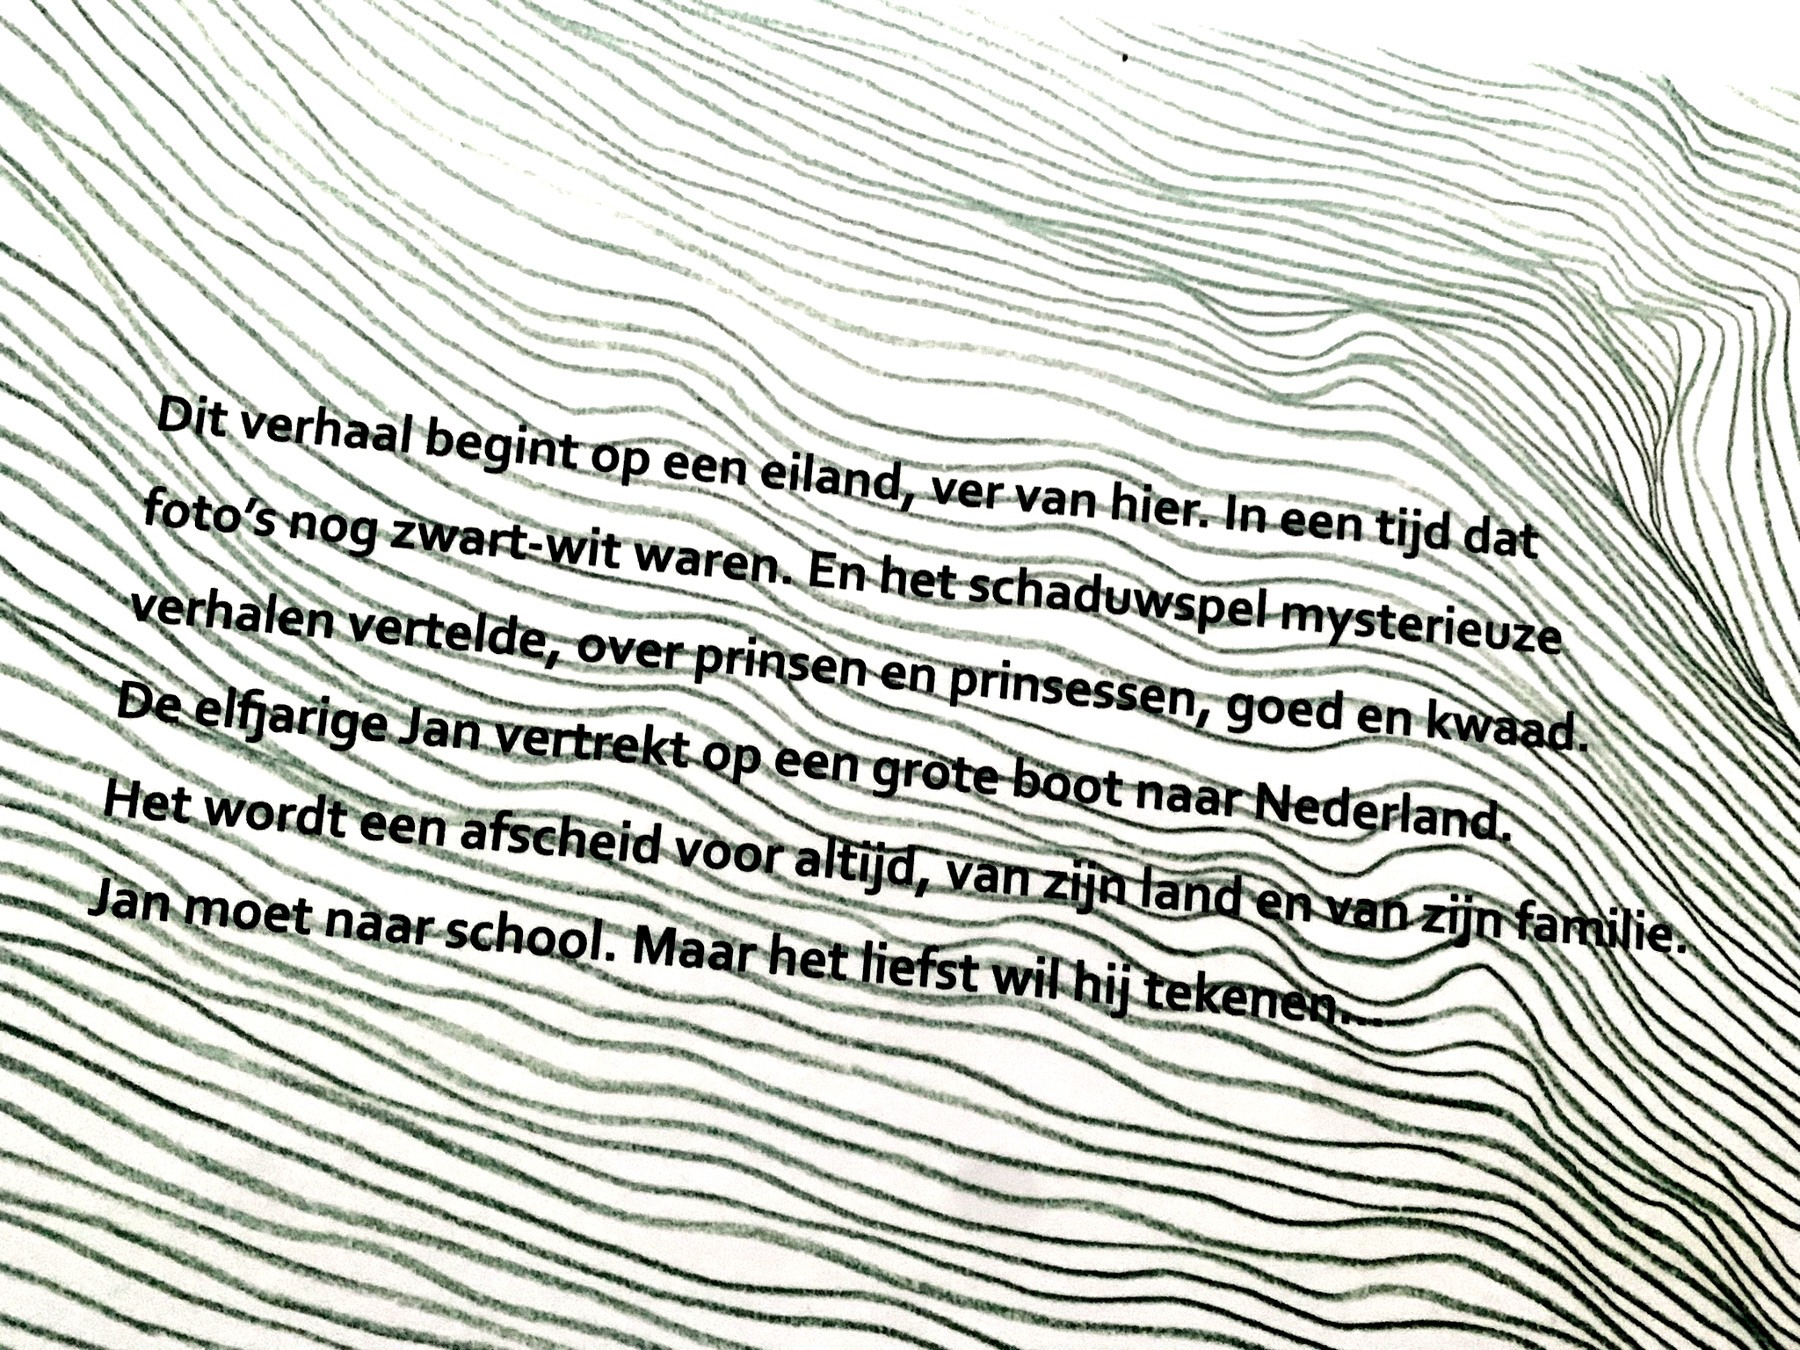 Dit verhaal begint op een eiland, ver van hier. In een tijd dat
foto’s nog zwart-wit waren. En het schaduwspel mysterieuze
verhalen vertelde, over prinsen en prinsessen, goed en kwaad.
De elfjarige Jan vertrekt op een grote boot naar Nederland.
Het wordt een afscheid voor altijd, van zijn land en van zijn familie.
Jan moet naar school. Maar het liefst wil hij tekenen...